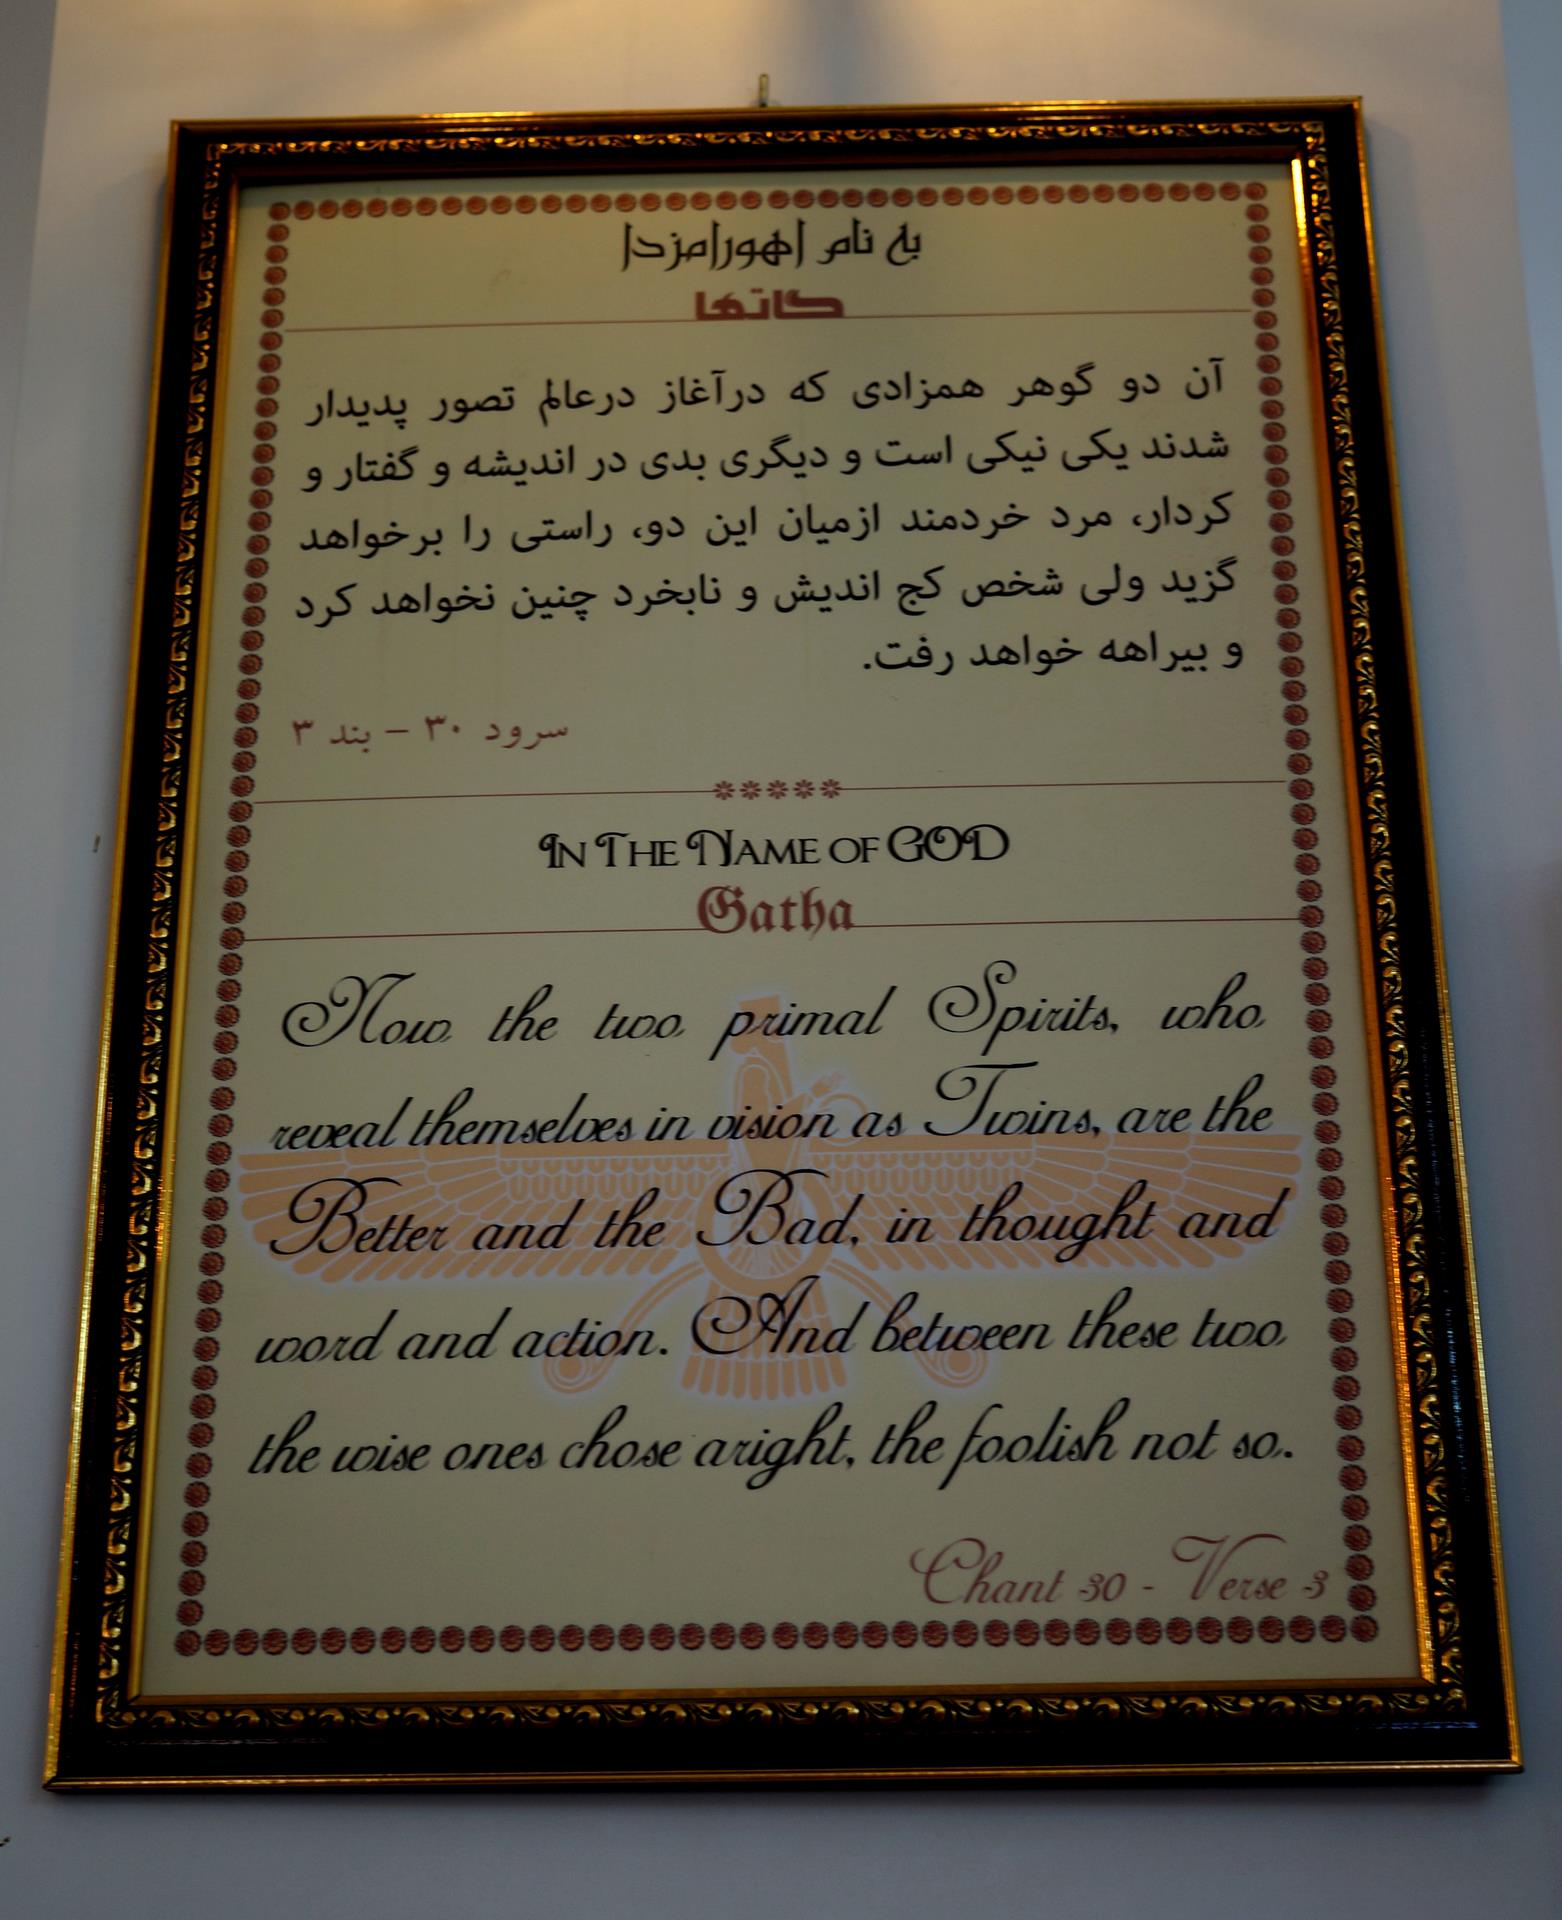 به نام اهورامزدا
گاتها
آن دو گوهر همزادی که درآغاز درعالم تصور پدیدار
شدند یکی نیکی است و دیگری بدی در اندیشه و گفتار و
کردار، مرد خردمند ازمیان این دو، راستی را برخواهد
گزید ولی شخص کج اندیش و نابخرد چنین نخواهد کرد
و بیراهه خواهد رفت.
سرود ۳۰ – بند ۳
IN THE NAME OF GOD
Gatha
Now the two primal Spirits, who
reveal themselves in vision as Twins, are the
Better and the Bad, in thought and
word and action. And between these two
the wise ones chose aright, the foolish not so.
Chant 30 - Verse 3